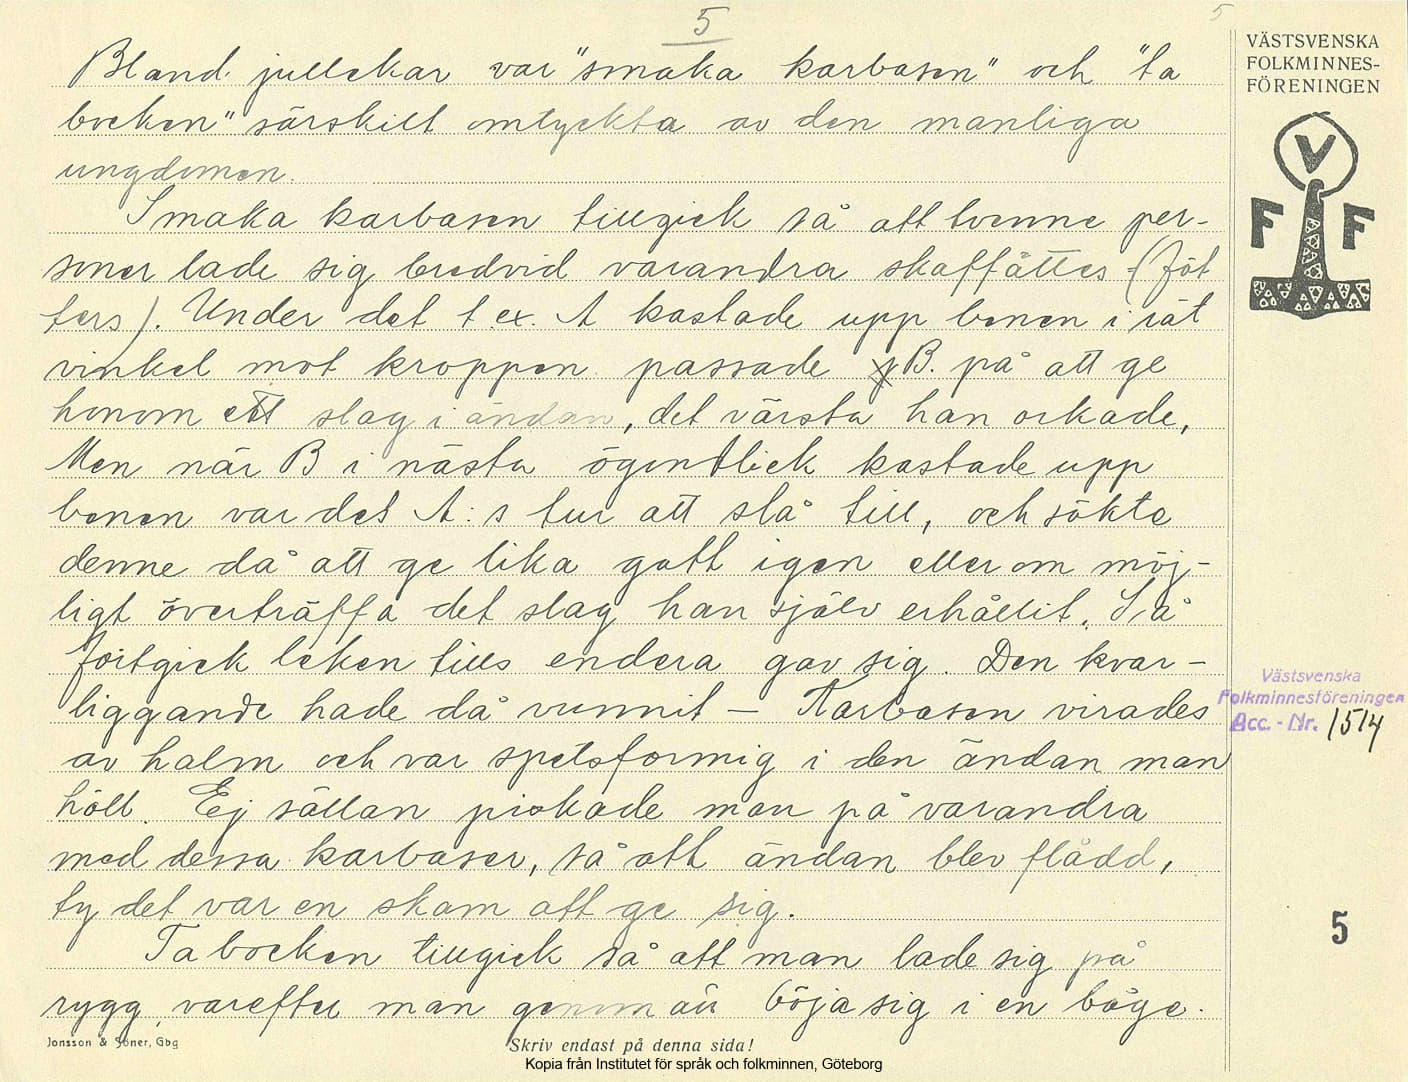 5
5
Bland jullekar var "smaka karbasen" och "ta
bocken" särskilt omtyckta av den manliga
ungdomen.
Smaka karbasen tillgick så att tvenne per-
soner lade sig bredvid varandra skaffättes (föt
ters). Under det t.ex. A kastade upp benen i rät
vinkel mot kroppen passade B. på att ge
honom ett slag i ändan, det värsta han orkade,
Men när B i nästa ögontlick kastade upp
benen var det A:s tur att slå till, och sökte
denne då att ge lika gott igen eller om möj-
ligt överträffa det slag han själv erhållit. Så
fortgick leken tills endera gav sig. Den kvar-
liggande hade då vunnit - Karbasen virades
av halm och var spetsformig i den ändan man
höll. Ej sällan piskade man på varandra
med dessa karbaser, så att ändan blev flådd,
ty det var en skam att ge sig.
Ta bocken tillgick så att man lade sig på
rygg, varefter man genom att böja sig i en båge.
VÄSTSVENSKA
FOLKMINNES-
FÖRENINGEN
V
F F
Västsvenska
Folkminnesföreningen
Acc. - Nr. 1514
5
Jonsson & Söner, Gbg
Skriv endast på denna sida!
Kopia från Institutet för språk och folkminnen, Göteborg